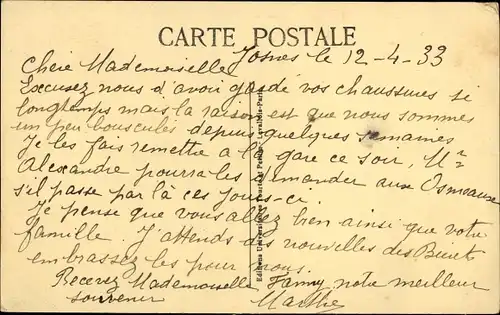 CARTE POSTALE
Josnes le 12-4-33
Chère Mademoiselle
Excusez nous d'avoir gardé vos chaussures si
longtemps mais la raison est que nous sommes
un peu bousculés depuis quelques semaines
Je les fais remettre à la gare ce soir, Mr
Alexandre pourra les demander aux Ormeaux
s'il passe par là ces jours-ci.
Je pense que vous allez bien ainsi que votre
famille. J'attends des nouvelles des
embrassez les pour nous.
Recevez Mademoiselle Fanny notre meilleur
souvenir Marthe